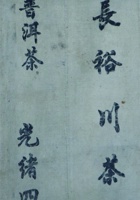 長裕川茶
普洱茶 光緒四